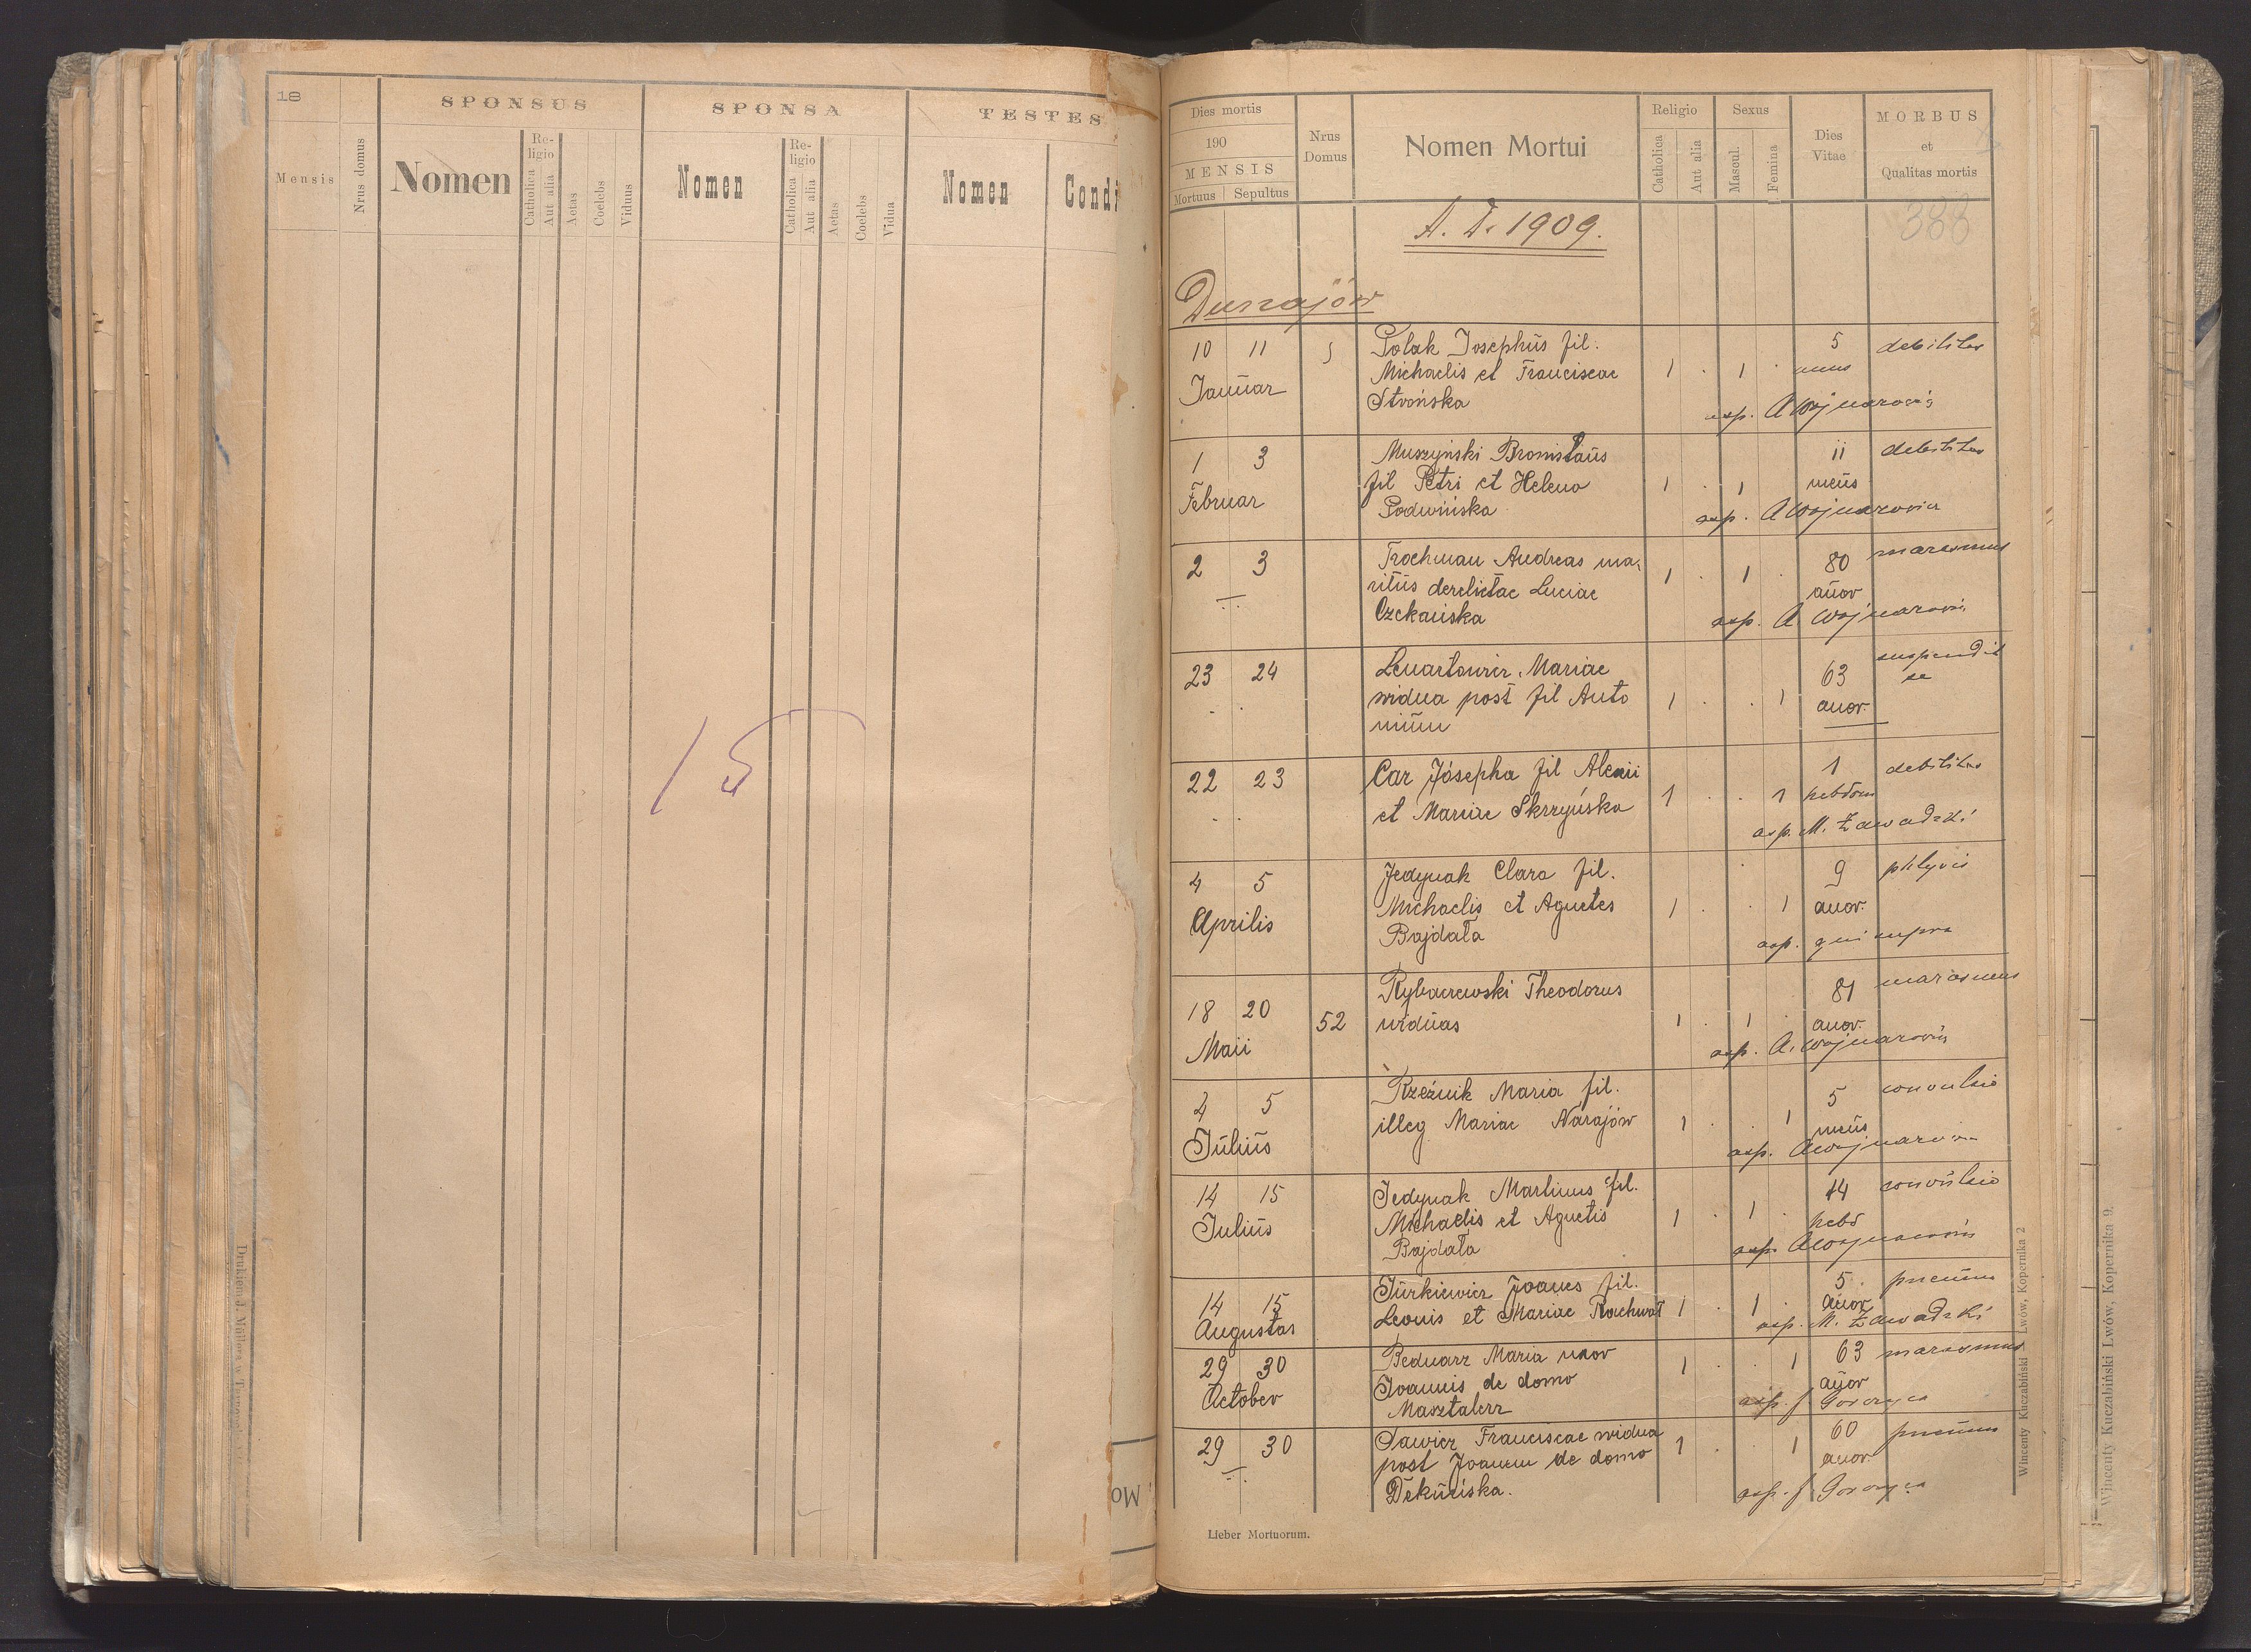 18
SPONSUS
SPONSA
TESTES
Mensis
Nrus domus
Nomen
Re-
ligio
Catholica
Aut alia
Aetas
Coelebs
Viduus
Nomen
Re-
ligio
Catholica
Aut alia
Aetas
Coelebs
Vidua
Nomen
Condi
15
Mo
Dies mortis
190
MENSIS
Mortuus
Sepultus
Nrus
Domus
Nomen Mortui
Religio
Catholica
Aut alia
Sexus
Mascul.
Femina
Dies
Vitae
MORBUS
et
Qualitas mortis
388
A. D. 1909.
Dunajów
10 11 5 Polak Josephus fil. 5 debilitas
Michaelis et Franciscae 1 . 1 . annus
Januar
asp. A Wojnarowicz
1 3 Muszyński Bronislaus 11 debilitas
fil Petri et Helena 1 . 1 mens
Februar Podwińska
asp. A Wojnarowicz
2 3 Trochman Andreas ma- 80 marasmus
ritus derelictae Luciae 1 . 1 . anor
Czekańska
asp. A. Wojnarowicz
23 24 Mariae 63 suspendit
se
vidua post fil Anto 1 . . 1 anor.
nium
22 23 Car Josepha fil Alexii 1 debilitas
et Mariae Skrzyńska 1 . . 1 hebdom
asp. M. Zawadzki
4 5 Jedynak Clara fil. 9 phtysis
Aprilis Michaelis et Agnetes 1 . . 1 anor.
Bajdała
asp. qui supra
18 20 52 Rybaczewski Theodorus 81 marasmus
viduas 1 . 1 . anor.
Maii
asp. A. Wojnarowicz
4 5 Rzeźnik Maria fil. 5 convulsio
illeg Mariae Narajów 1 . . 1 mens
Julius
asp. A Wojnarowicz
14 15 Jedynak Martinus fil. 14 convulsio
Julius Michaelis et Agnetis 1 . 1 . hebd
Bajdała
asp. A Wojnarowicz
14 15 Turkiewicz Joanes fil. 5 pneum
Leonis et Mariae 1 . 1 . anor
Augustas
asp. M. Zawadzki
29 30 Bednarz Maria uxor 1 . . 1 63 marasmus
October Joannis de domo anor
Masztalerz
asp. J
29 30 Sawicz Franciscae vidua 1 . . 1 60 pneum
post Joanem de domo anor.
asp. J
Lieber Mortuorum.
Wincenty Kuczabiński Lwów, Kopernika 2
Wincenty Kuczabiński Lwów, Kopernika 9.